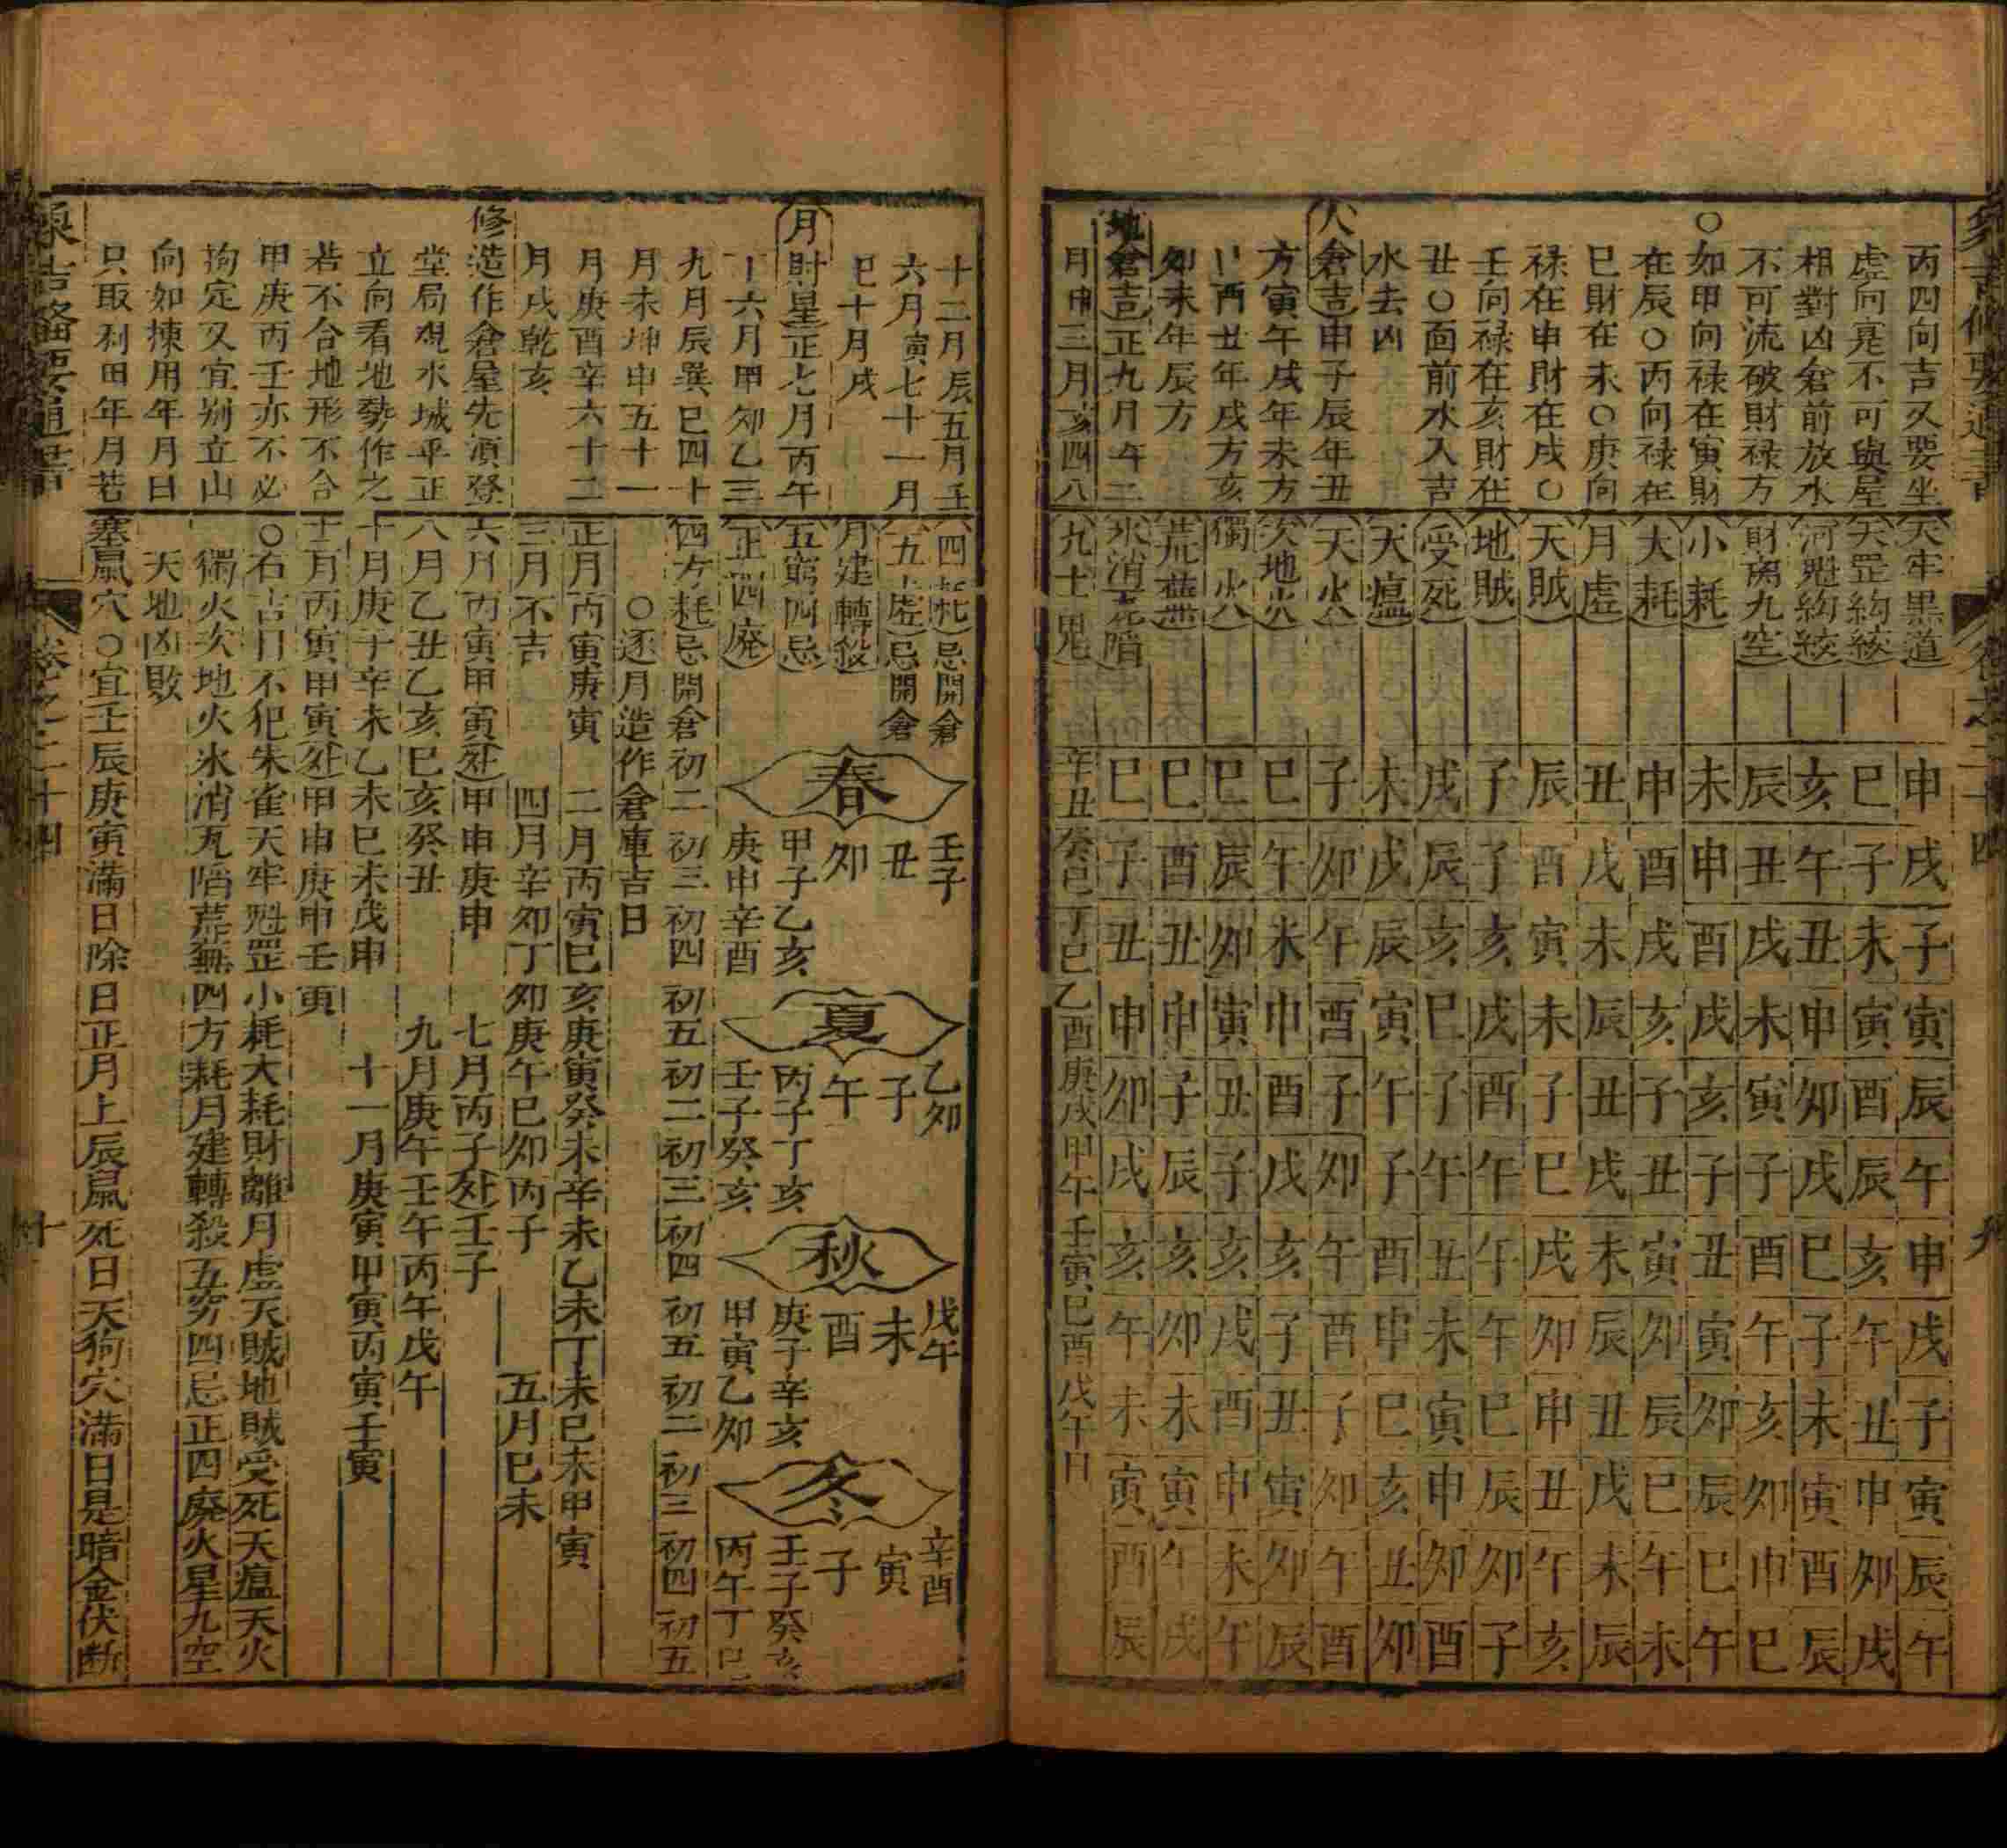 丙四向吉又要坐
虛向寔不可與屋
相對凶倉前放水
不可流破財祿方
○如甲向祿在寅財
在辰○丙向祿在
巳財在未○庚向
祿在申財在戌○
壬向祿在亥財在
丑○面前水入吉
水去凶
人倉吉申子辰年丑
方寅午戌年未方
巳酉丑年戌方亥
卯未年辰方
地倉吉正九月午二
月申三月亥四八
天牢黑道 申戌子寅辰午申戌子寅辰午
天罡絇絞 巳子未寅酉辰亥午丑申卯戌
河魁絇絞 亥午丑申卯戌巳子未寅酉辰
財离九空 辰丑戌未寅子酉午亥卯申巳
小耗 未申酉戌亥子丑寅卯辰巳午
大耗 申酉戌亥子丑寅卯辰巳午未
月虛 丑戌未辰丑戌未辰丑戌未辰
天賊 辰酉寅未子巳戌卯申丑午亥
地賊 子子亥戌酉午午午巳辰卯子
受死 戌辰亥巳子午丑未寅申卯酉
天瘟 未戌辰寅午子酉申巳亥丑卯
天火 子卯午酉子卯午酉子卯午酉
次地火 巳午未申酉戌亥子丑寅卯辰
獨火 巳辰卯寅丑子亥戌酉申未午
荒蕪 巳酉丑申子辰亥卯未寅午戌
氷消瓦陷 巳子丑申卯戌亥午未寅酉辰
九土鬼 辛丑癸巳丁巳乙酉庚戌甲午壬寅己酉戊午日
十二月辰五月壬
六月寅七十一月
巳十月戌
月財星正七月丙午
十六月甲卯乙三
九月辰巽巳四十
月未坤申五十一
月庚酉辛六十二
月戌乾亥
修造作倉屋先須登
堂局覌水城平正
立向看地勢作之
若不合地形不合
甲庚丙壬亦不必
拘定又宜別立山
向如揀用年月日
只取利田年月若
四耗忌開倉 春 壬子 夏 乙卯 秋 戊午 冬 辛酉
五虛忌開倉 丑 子 未 寅
月建轉殺 卯 午 酉 子
五窮四忌 甲子乙亥 丙子丁亥 庚子辛亥 壬子癸亥
正四廢 庚申辛酉 壬子癸亥 甲寅乙卯 丙午丁巳
四方耗忌開倉初二初三初四初五初二初三初四初五初二初三初四初五
○逐月造作倉庫吉日
正月丙寅庚寅 二月丙寅己亥庚寅癸未辛未乙未丁未己未甲寅
三月不吉 四月辛卯丁卯庚午己卯丙子 五月己未
六月丙寅甲寅处甲申庚申 七月丙子处壬子
八月乙丑乙亥己亥癸丑 九月庚午壬午丙午戊午
十月庚子辛未乙未己未戊申 十一月庚寅甲寅丙寅壬寅
十二月丙寅甲寅处甲申庚申壬寅
○右吉日不犯朱雀天牢魁罡小耗大耗財離月虛天賊地賊受死天瘟天火
獨火次地火氷消瓦陷荒蕪四方耗月建轉殺五窮四忌正四廢火星九空
天地凶敗
塞鼠穴○宜壬辰庚寅滿日除日正月上辰鼠死日天狗穴滿日是暗金伏斷